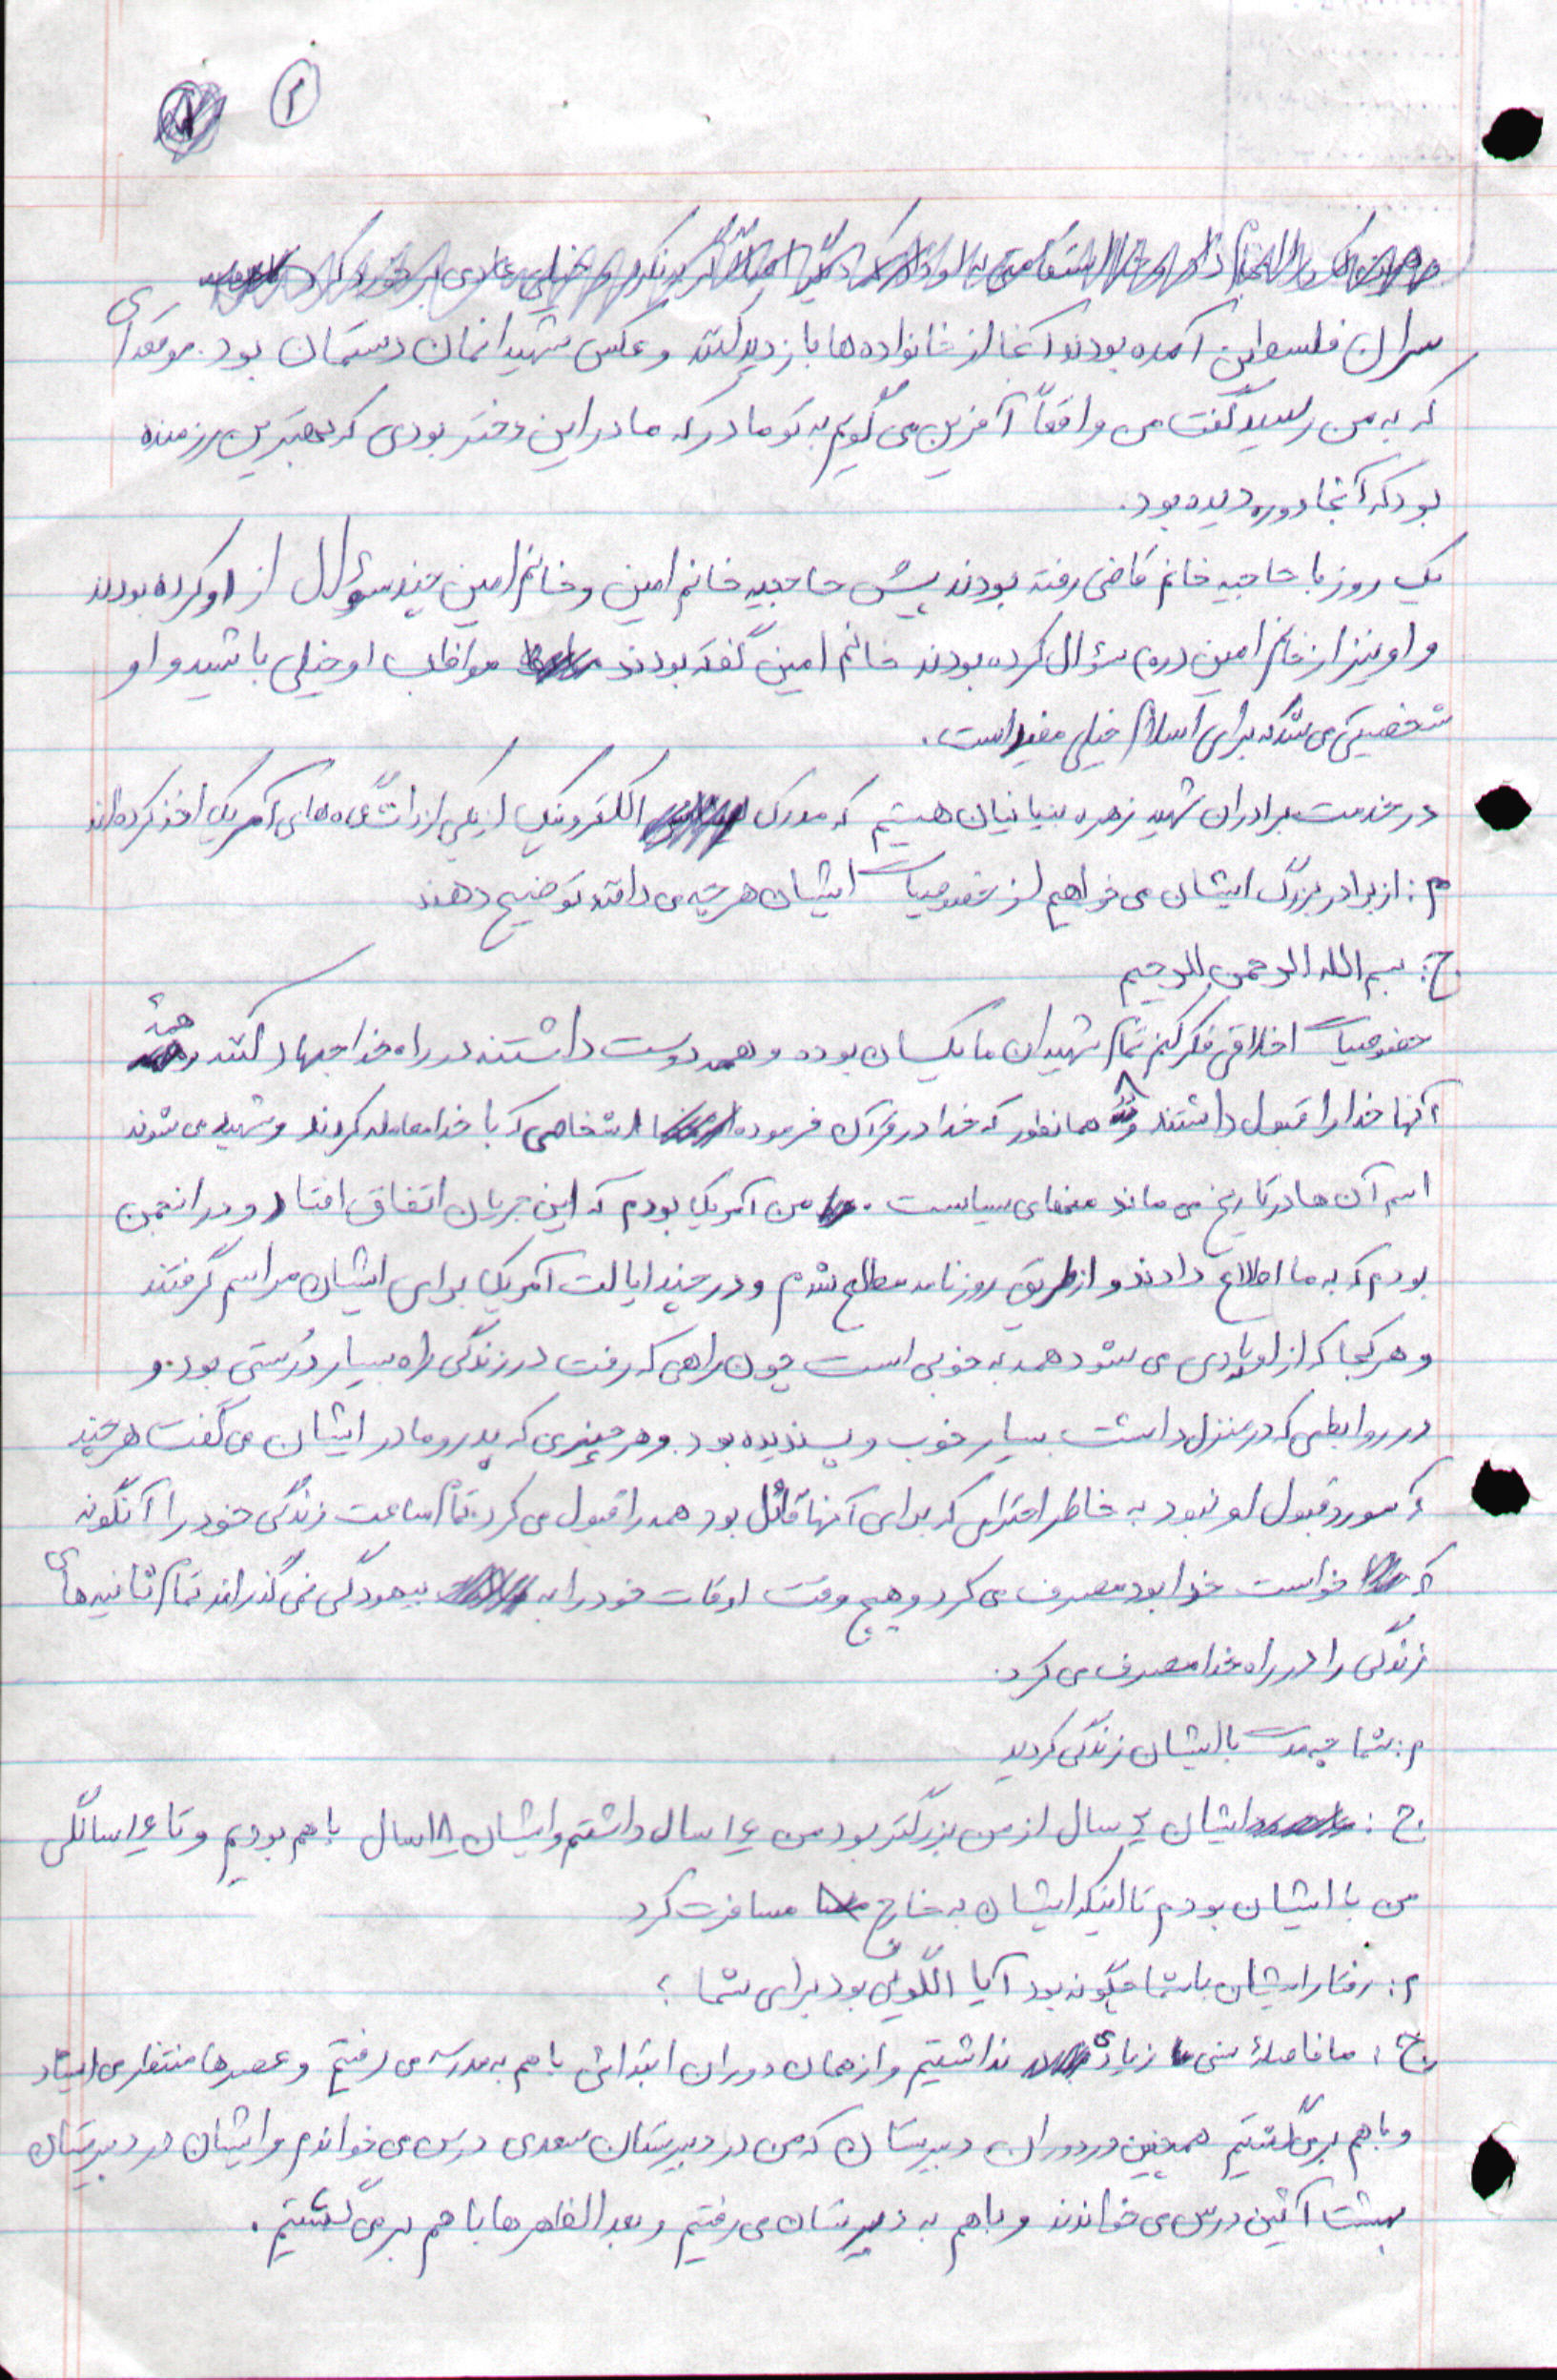 ۲
سران فلسطین آمده بودند آنجا از خانواده ها بازدید کنند و عکس شهیدانمان دستمان بود. موقعی
که به من رسید گفت من واقعاً آفرین می گویم به تو مادر که مادر این دختر بودی که بهترین رزمنده
بود که آنجا دوره دیده بود.
یک روز با حاجیه خانم قاضی رفته بودند پیش حاجیه خانم امین و خانم امین چند سؤال از او کرده بودند
و او نیز از خانم امین دو سؤال کرده بودند خانم امین گفته بودند مواظب او خیلی باشید و او
شخصیتی می شد که برای اسلام خیلی مفید است.
در خدمت برادران شهید زهره بنیانیان هستیم که مدرک الکترونیک از یکی از دانشگاه های آمریکا اخذ کرده اند
م: از برادر بزرگ ایشان می خواهیم از خصوصیات ایشان هر چه می دانند توضیح دهند
ج: بسم الله الرحمن الرحیم
خصوصیات اخلاقی فکر کنم تمام شهیدان ما یکسان بوده و همه دوست داشتند در راه خدا جهاد کنند همه
آنها خدا را قبول داشتند و همانطور که خدا در قرآن فرموده اشخاصی که با خدا معامله کردند و شهید می شوند
اسم آن ها در تاریخ می ماند . من آمریکا بودم که این جریان اتفاق افتاد و در انجمن
بودم که به ما اطلاع دادند و از طریق روزنامه مطلع شدم و در چند ایالت آمریکا برای ایشان مراسم گرفتند
و هر کجا که از او یادی می شود همه به خوبی است چون راهی که رفت در زندگی راه بسیار درستی بود. و
در روابطی که در منزل داشت بسیار خوب و پسندیده بود. و هر چیزی که پدر و مادر ایشان می گفت هر چند
که مورد قبول او نبود به خاطر احترامی که برای آنها قائل بود همه را قبول می کرد. تمام ساعت زندگی خود را آنگونه
که خواست خدا بود مصرف می کرد و هیچ وقت اوقات خود را به بیهودگی نمی گذراند تمام ثانیه های
زندگی را در راه خدا مصرف می کرد.
م: شما چه مدت با ایشان زندگی کردید
ج: ایشان ۲ سال از من بزرگتر بود من ۱۶ سال داشتم و ایشان ۱۸ سال با هم بودیم و تا ۱۶ سالگی
من با ایشان بودم تا اینکه ایشان به خارج مسافرت کرد
م: رفتار ایشان با شما چگونه بود آیا الگویی بود برای شما ؟
ج: ما فاصلهٔ سنی زیادی نداشتیم و از همان دوران ابتدائی با هم به مدرسه می رفتیم و عصرها منتظر می ایستاد
و با هم بر می گشتیم همچنین در دوران دبیرستان که من در دبیرستان سعدی درس می خواندم و ایشان در دبیرستان
بهشت آئین درس می خواندند و با هم به دبیرستان می رفتیم و بعد الظهرها با هم بر می گشتیم.